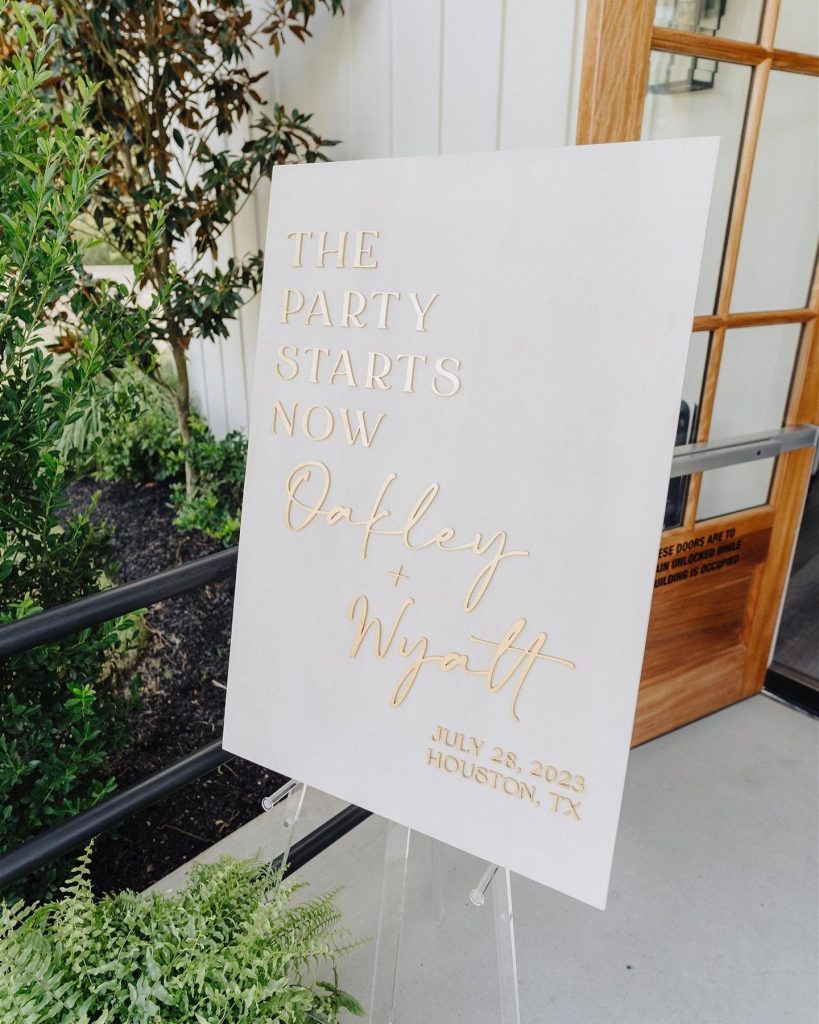 THE
PARTY
STARTS
NOW
Oakley
+
Wyatt
JULY 28, 2023
HOUSTON, TX
DOORS ARE TO
UNLOCKED WHILE
IS OCCUPIED